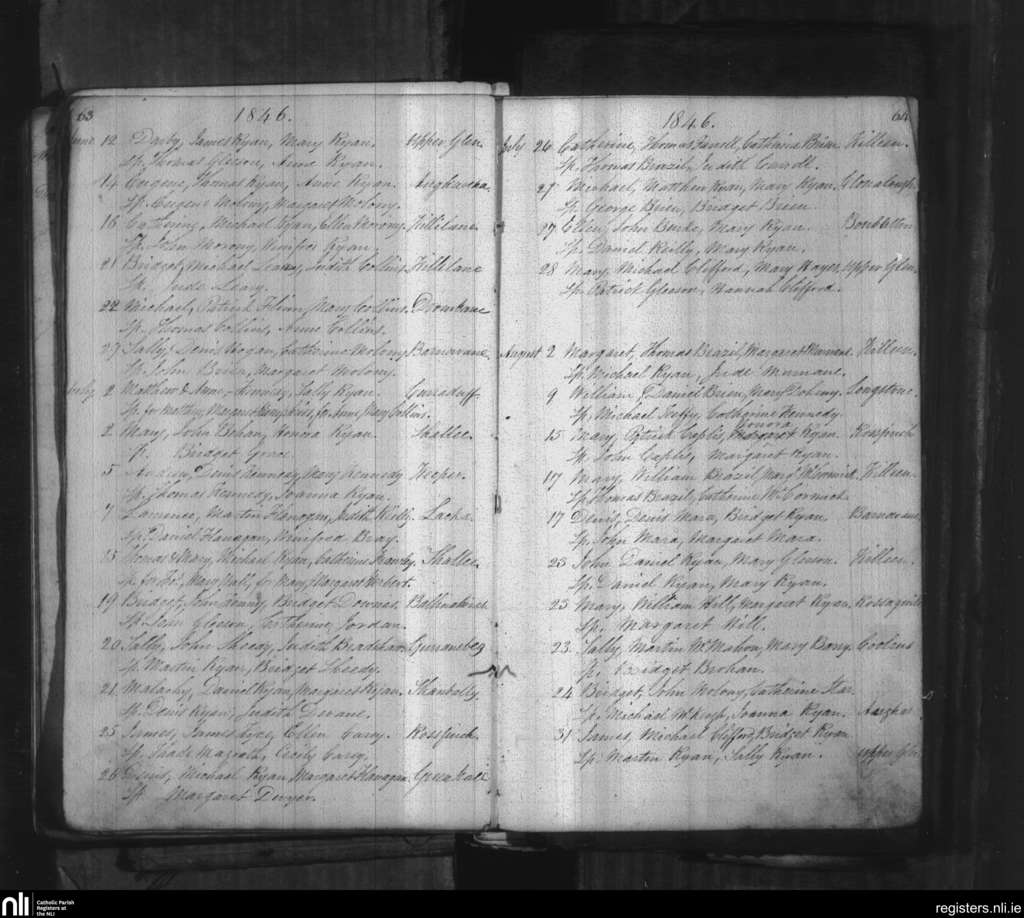 63
1846.
June 12 Darby, James Ryan, Mary Ryan. Upper Glen.
Sp. Thomas Gleeson, Anne Ryan.
14 Eugene, Thomas Ryan, Anne Ryan.
Sp. Eugene Molony, Margaret Molony.
16 Catherine, Michael Ryan, Ellen Morony. Killilane.
Sp. John Morony, Winifred Ryan.
21 Bridget, Michael Leary, Judith Collins. Killilane
Sp. Jude Leary.
22 Michael, Patrick Flinn, Mary Collins.
Sp. Thomas Collins, Anne Collins.
27 Sally, Denis Hogan, Catherine Molony. Barnavane.
Sp. John Brien, Margaret Molony.
July 2 Matthew & Anne, Sally Ryan.
Sp. for Matthew, for Anne, Mary Collins.
2 Mary, John Bohan, Honora Ryan. Shallee.
Sp. Bridget Grace.
5 Andrew, Denis Kennedy, Mary Kennedy. Keeper.
Sp. Thomas Kennedy, Joanna Ryan.
7 Laurence, Martin Flanagan, Judith Lacka.
Sp. Daniel Flanagan, Winifred Bray.
13 Thomas & Mary, Michael Ryan, Catherine Shallee.
Sp. for Mary Nail, for Mary, Margaret Herbert.
19 Bridget, John Bridget Downes.
Sp. John Gleeson, Catherine Jordan.
20 Sally, John Sheedy, Judith Bradshaw.
Sp. Martin Ryan, Bridget Sheedy.
21 Malachy, Daniel Ryan, Margaret Ryan. Shanbally.
Sp. Denis Ryan, Judith Devane.
25 James, James Ellen Carey. Rossfinch.
Sp. Thade Magrath, Cecily Carey.
26 Denis, Michael Ryan, Margaret Flanagan. Green Hall
Sp. Margaret Dwyer.
64
1846.
July 26 Catherine, Thomas Catherine Brien. Killeen.
Sp. Thomas Brazil, Judith
27 Michael, Matthew Ryan, Mary Ryan.
Sp. George Brien, Bridget Brien.
27 Ellen, John Burke, Mary Ryan.
Sp. Daniel Reilly, Mary Ryan.
28 Mary, Michael Clifford, Mary Hayes, Upper Glen.
Sp. Patrick Gleeson, Hannah Clifford.
August 2 Margaret, Thomas Brazil, Margaret Murnane. Killeen.
Sp. Michael Ryan, Jude Murnane.
9 William, Daniel Brien, Mary Doheny. Longstone.
Sp. Michael Keeffy, Catherine Kennedy.
15 Mary, Patrick Caplis, Honora Ryan. Rossfinch
Sp. John Caplis, Margaret Ryan.
17 Mary, William Brazil, Mary McCormick. Killeen.
Sp. Thomas Brazil, Catherine McCormick.
17 Denis, Denis Mara, Bridget Ryan. Barnavane.
Sp. John Mara, Margaret Mara.
23 John, Daniel Ryan, Mary Gleeson. Killeen.
Sp. Daniel Ryan, Mary Ryan.
23 Mary, William Hill, Margaret Ryan.
Sp. Margaret Hill.
23 Sally, Martin McMahon, Mary Barry.
Sp. Bridget Brohan.
24 Bridget, John Molony, Catherine
Sp. Michael McKeogh, Joanna Ryan.
31 James, Michael Clifford, Bridget Ryan
Sp. Martin Ryan, Sally Ryan. Upper Glen
nli Catholic Parish
Registers at
the NLI
registers.nli.ie